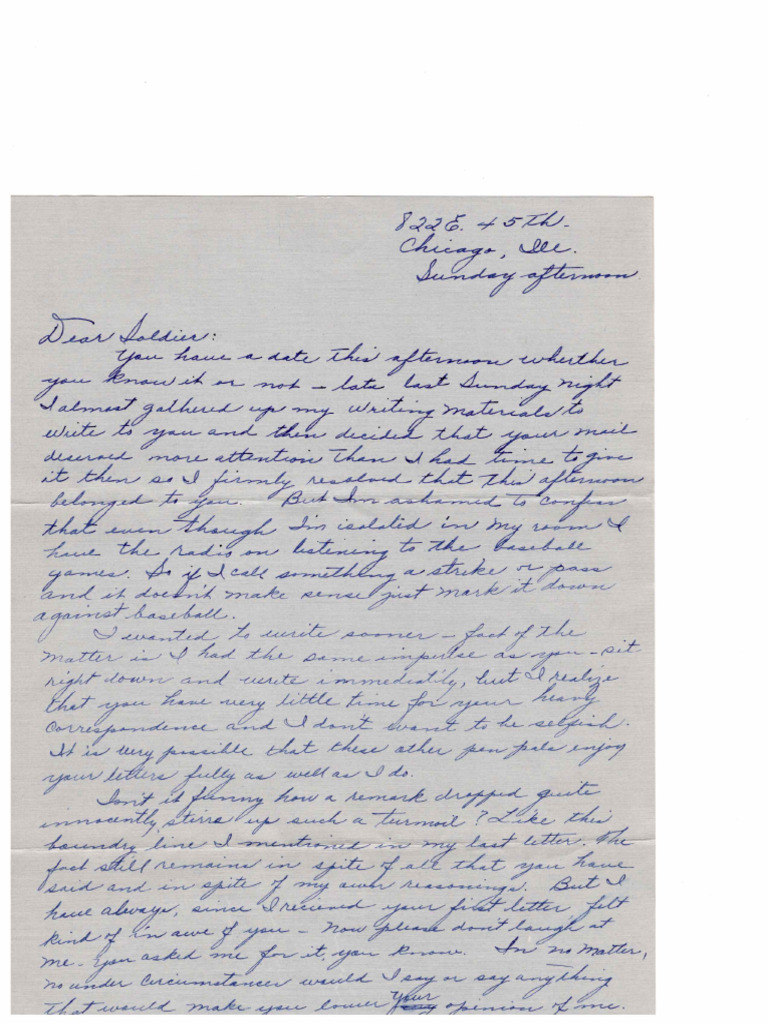 822 E. 45th.
Chicago, Ill.
Sunday afternoon.
Dear Soldier:
You have a date this afternoon wherther
you know it or not - late last Sunday night
I almost gathered up my writing materials to
write to you and then decided that your mail
deserved more attention than I had time to give
it then so I firmly resolved that this afternoon
belonged to you. But I'm ashamed to confess
that even though I'm isolated in my room I
have the radio on listening to the baseball
games. So if I call something a strike or pass
and it doesn't make sense just mark it down
against baseball.
I wanted to write sooner - fact of the
matter is I had the same impulse as you - sit
right down and write immediatly, but I realize
that you have very little time for your heavy
correspondence and I don't want to be selfish.
It is very possible that these other pen pals enjoy
your letters fully as well as I do.
Isn't it funny how a remark dropped quite
innocently, stirrs up such a turmoil? Like this
boundry line I mentioned in my last letter. The
fact still remains in spite of all that you have
said and in spite of my own reasonings. But I
have always, since I recieved your first letter, felt
kind of in awe of you - now please don't laugh at
me - you asked me for it, you know. In no matter,
no under circumstances would I say or say anything
that would make you lower your opinion of me.